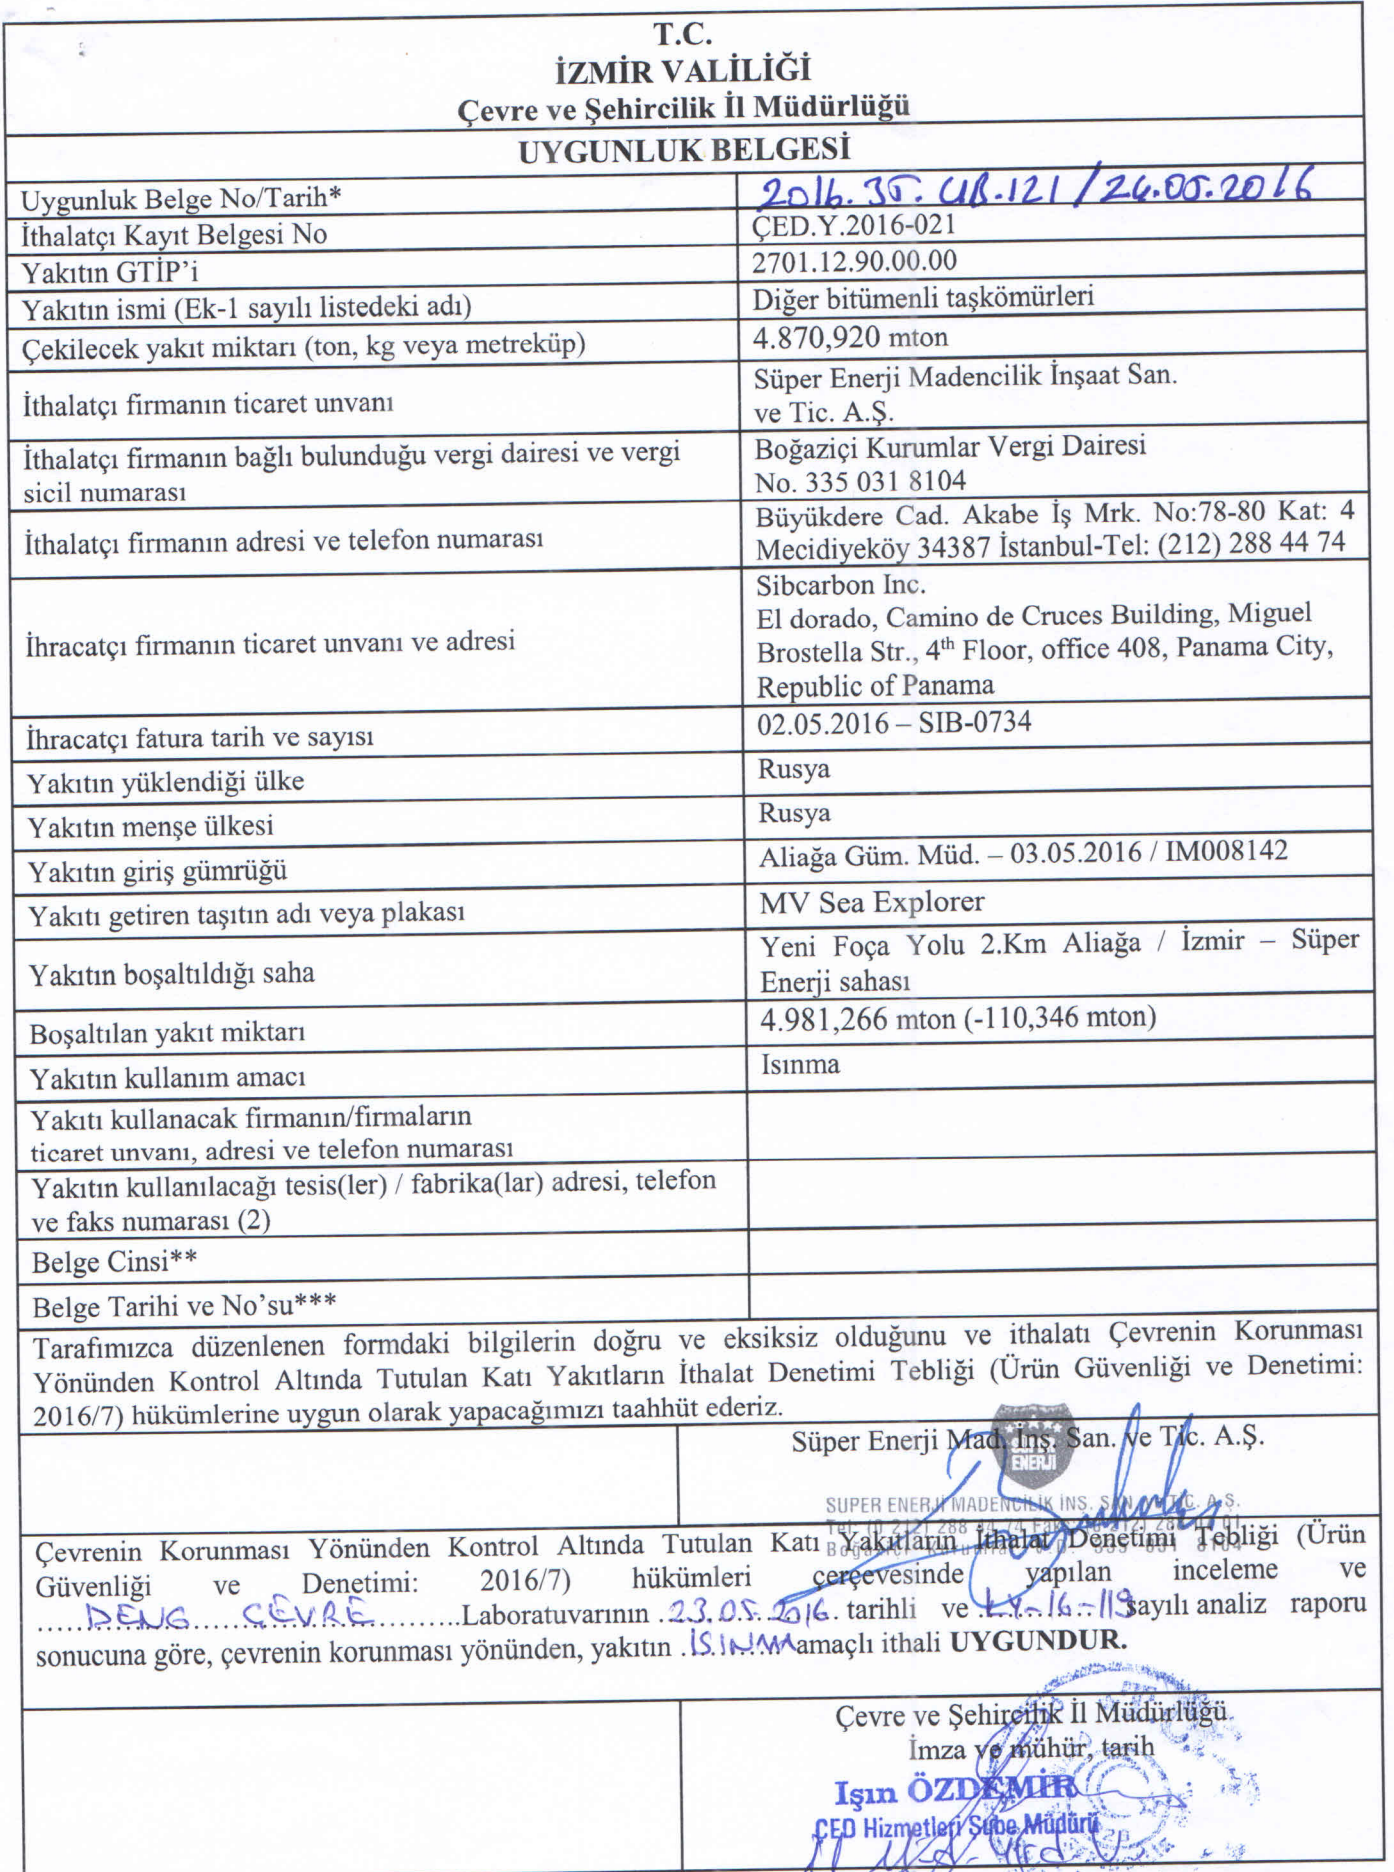 T.C.
İZMİR VALİLİĞİ
Çevre ve Şehircilik İl Müdürlüğü
UYGUNLUK BELGESİ
Uygunluk Belge No/Tarih* 2016.35.UB.121/24.05.2016
İthalatçı Kayıt Belgesi No ÇED.Y.2016-021
Yakıtın GTİP'i 2701.12.90.00.00
Yakıtın ismi (Ek-1 sayılı listedeki adı) Diğer bitümenli taşkömürleri
Çekilecek yakıt miktarı (ton, kg veya metreküp) 4.870,920 mton
İthalatçı firmanın ticaret unvanı
Süper Enerji Madencilik İnşaat San.
ve Tic. A.Ş.
İthalatçı firmanın bağlı bulunduğu vergi dairesi ve vergi
sicil numarası
Boğaziçi Kurumlar Vergi Dairesi
No. 335 031 8104
İthalatçı firmanın adresi ve telefon numarası
Büyükdere Cad. Akabe İş Mrk. No:78-80 Kat: 4
Mecidiyeköy 34387 İstanbul-Tel: (212) 288 44 74
İhracatçı firmanın ticaret unvanı ve adresi
Sibcarbon Inc.
El dorado, Camino de Cruces Building, Miguel
Brostella Str., 4th Floor, office 408, Panama City,
Republic of Panama
İhracatçı fatura tarih ve sayısı 02.05.2016 – SIB-0734
Yakıtın yüklendiği ülke Rusya
Yakıtın menşe ülkesi Rusya
Yakıtın giriş gümrüğü Aliağa Güm. Müd. – 03.05.2016 / IM008142
Yakıtı getiren taşıtın adı veya plakası MV Sea Explorer
Yakıtın boşaltıldığı saha
Yeni Foça Yolu 2.Km Aliağa / İzmir – Süper
Enerji sahası
Boşaltılan yakıt miktarı 4.981,266 mton (-110,346 mton)
Yakıtın kullanım amacı Isınma
Yakıtı kullanacak firmanın/firmaların
ticaret unvanı, adresi ve telefon numarası
Yakıtın kullanılacağı tesis(ler) / fabrika(lar) adresi, telefon
ve faks numarası (2)
Belge Cinsi**
Belge Tarihi ve No'su***
Tarafımızca düzenlenen formdaki bilgilerin doğru ve eksiksiz olduğunu ve ithalatı Çevrenin Korunması
Yönünden Kontrol Altında Tutulan Katı Yakıtların İthalat Denetimi Tebliği (Ürün Güvenliği ve Denetimi:
2016/7) hükümlerine uygun olarak yapacağımızı taahhüt ederiz.
Süper Enerji Mad. İnş. San. ve Tic. A.Ş.
ENERJİ
SÜPER ENERJİ MADENCİLİK İNŞ. SAN. VE TİC. A.Ş.
Tel: (0 212) 288 44 74
Çevrenin Korunması Yönünden Kontrol Altında Tutulan Katı Yakıtların İthalat Denetimi Tebliği (Ürün
Güvenliği ve Denetimi: 2016/7) hükümleri çerçevesinde yapılan inceleme ve
DENG ÇEVRE Laboratuvarının 23.05.2016 tarihli ve LY-16-119 sayılı analiz raporu
sonucuna göre, çevrenin korunması yönünden, yakıtın ISINMA amaçlı ithali UYGUNDUR.
Çevre ve Şehircilik İl Müdürlüğü
İmza ve mühür, tarih
Işın ÖZDEMİR
ÇED Hizmetleri Şube Müdürü